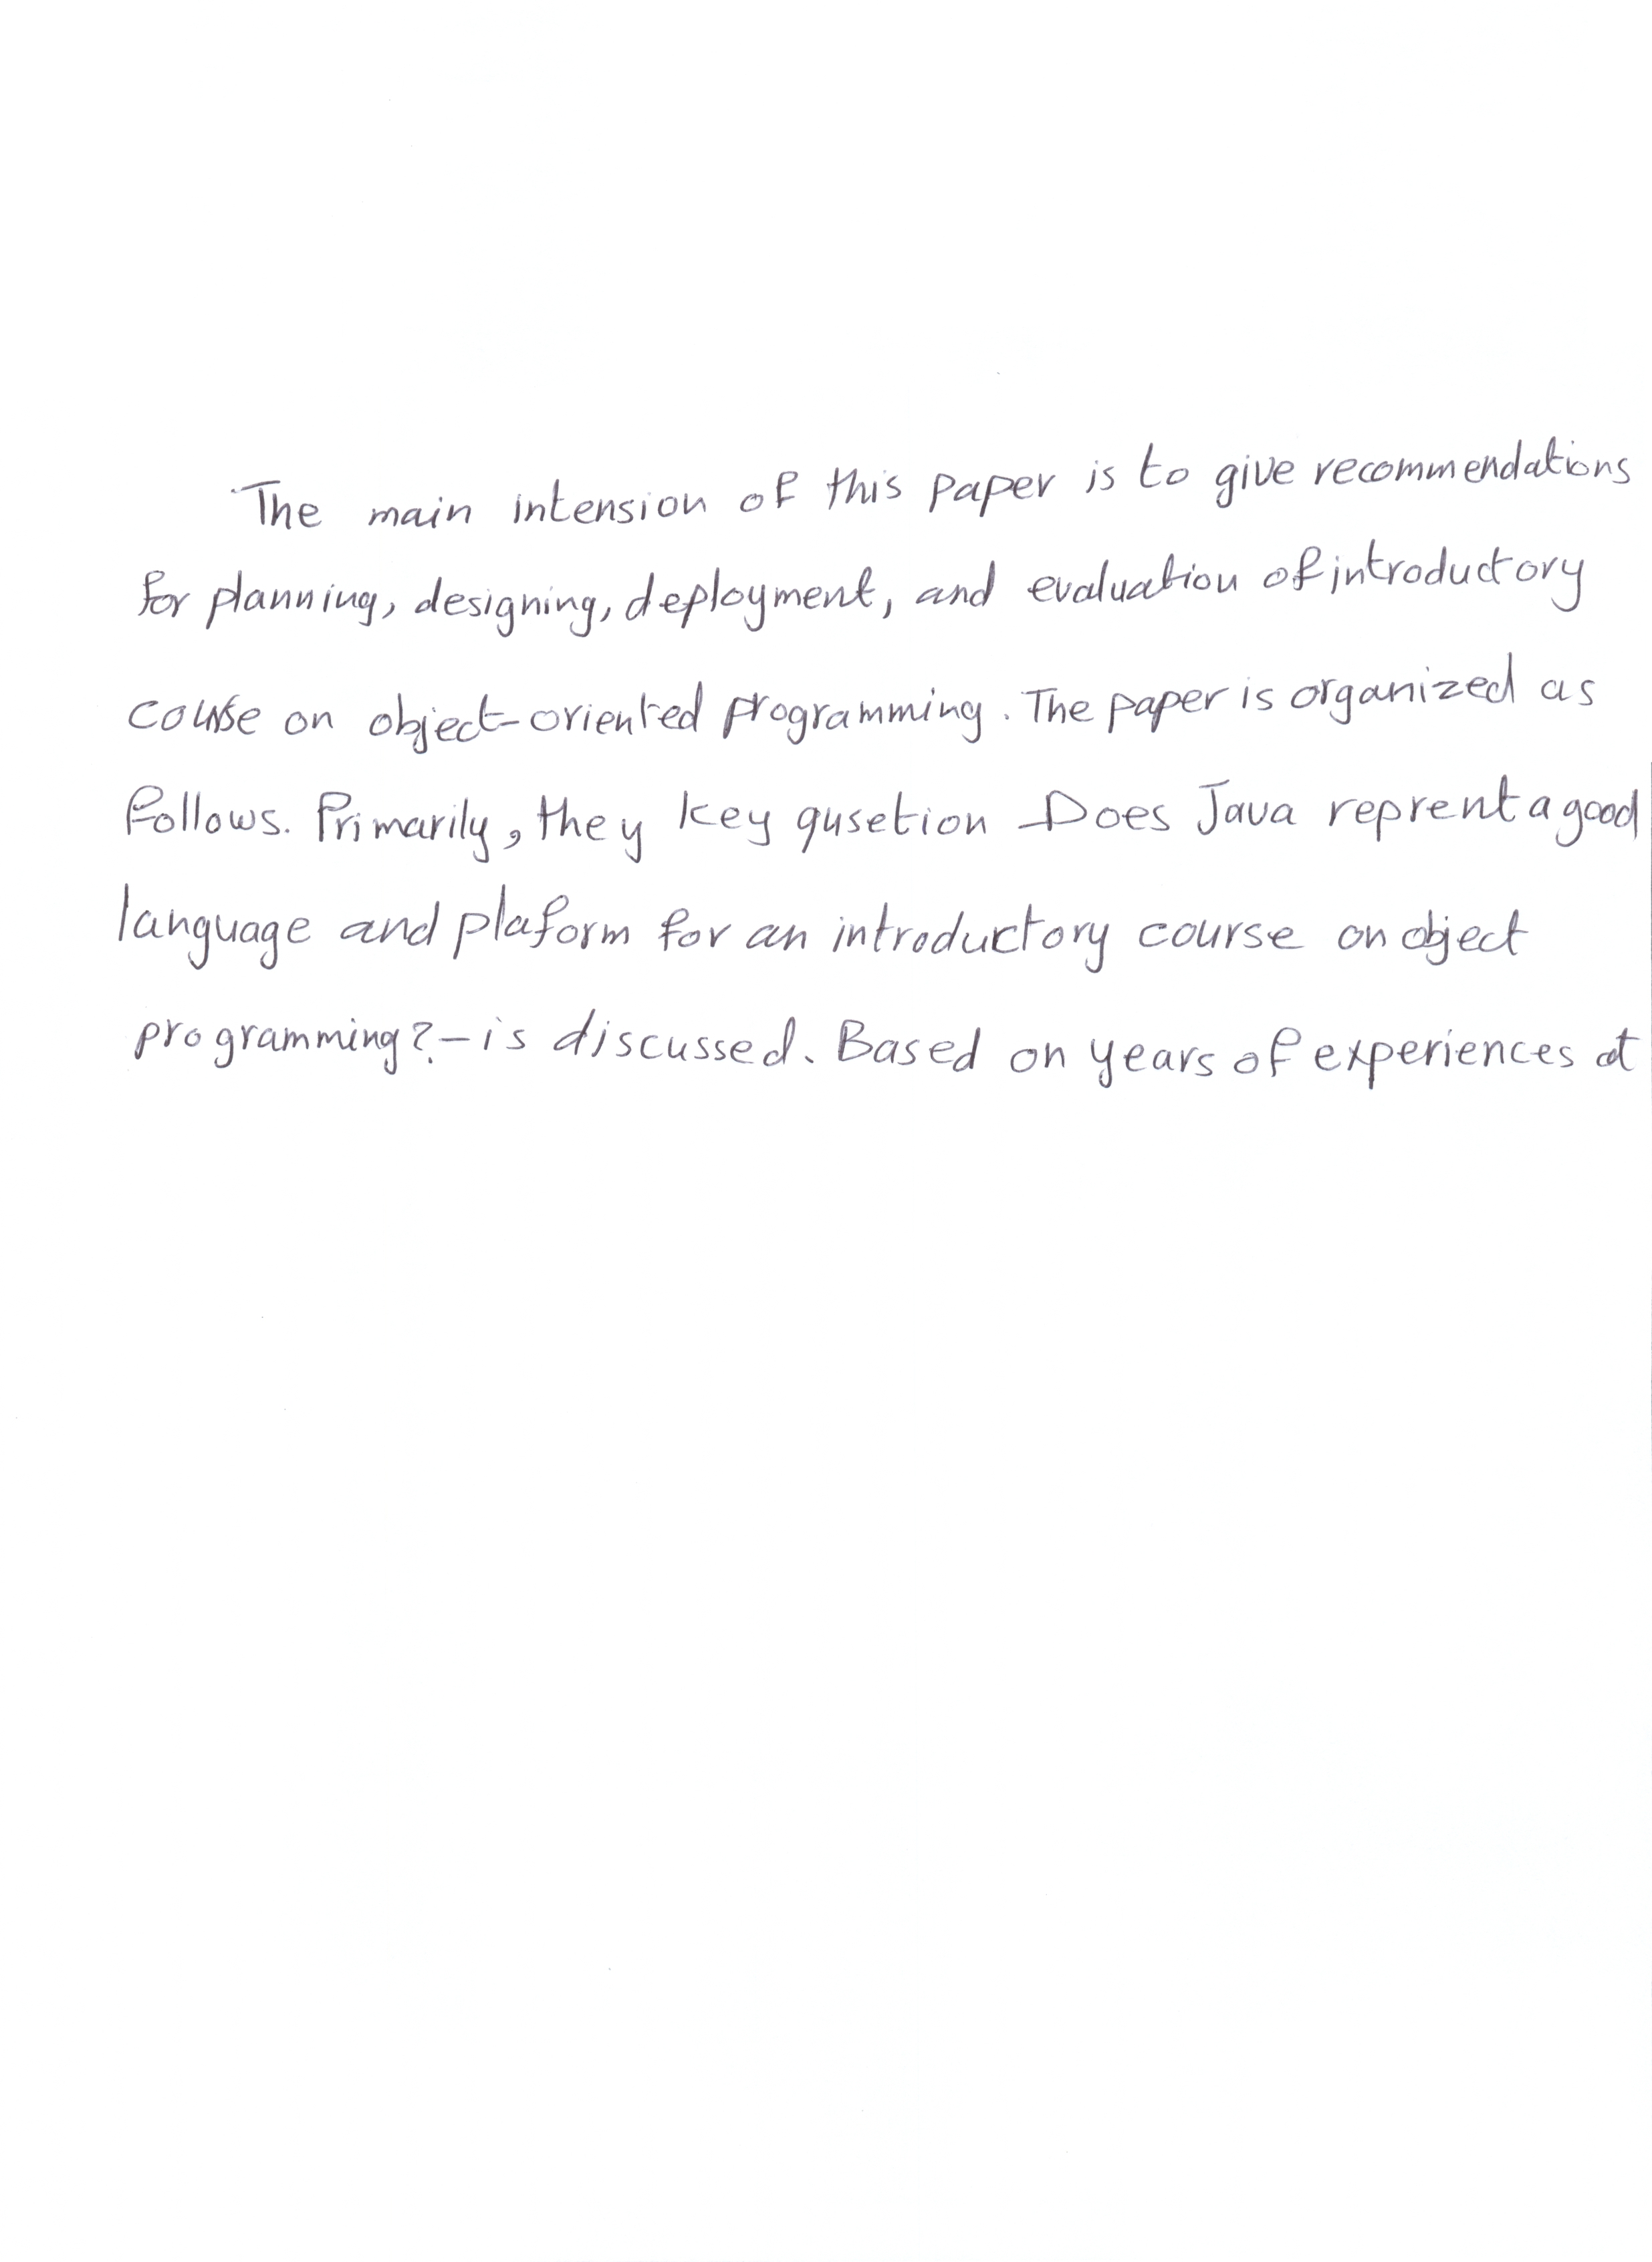 The main intension of this paper is to give recommendations
for planning, designing, deployment, and evaluation of introductory
course on object-oriented programming. The paper is organized as
follows. Primarily, they key qusetion Does Java reprent a good
language and plaform for an introductory course on object
programming? - is discussed. Based on years of experiences at